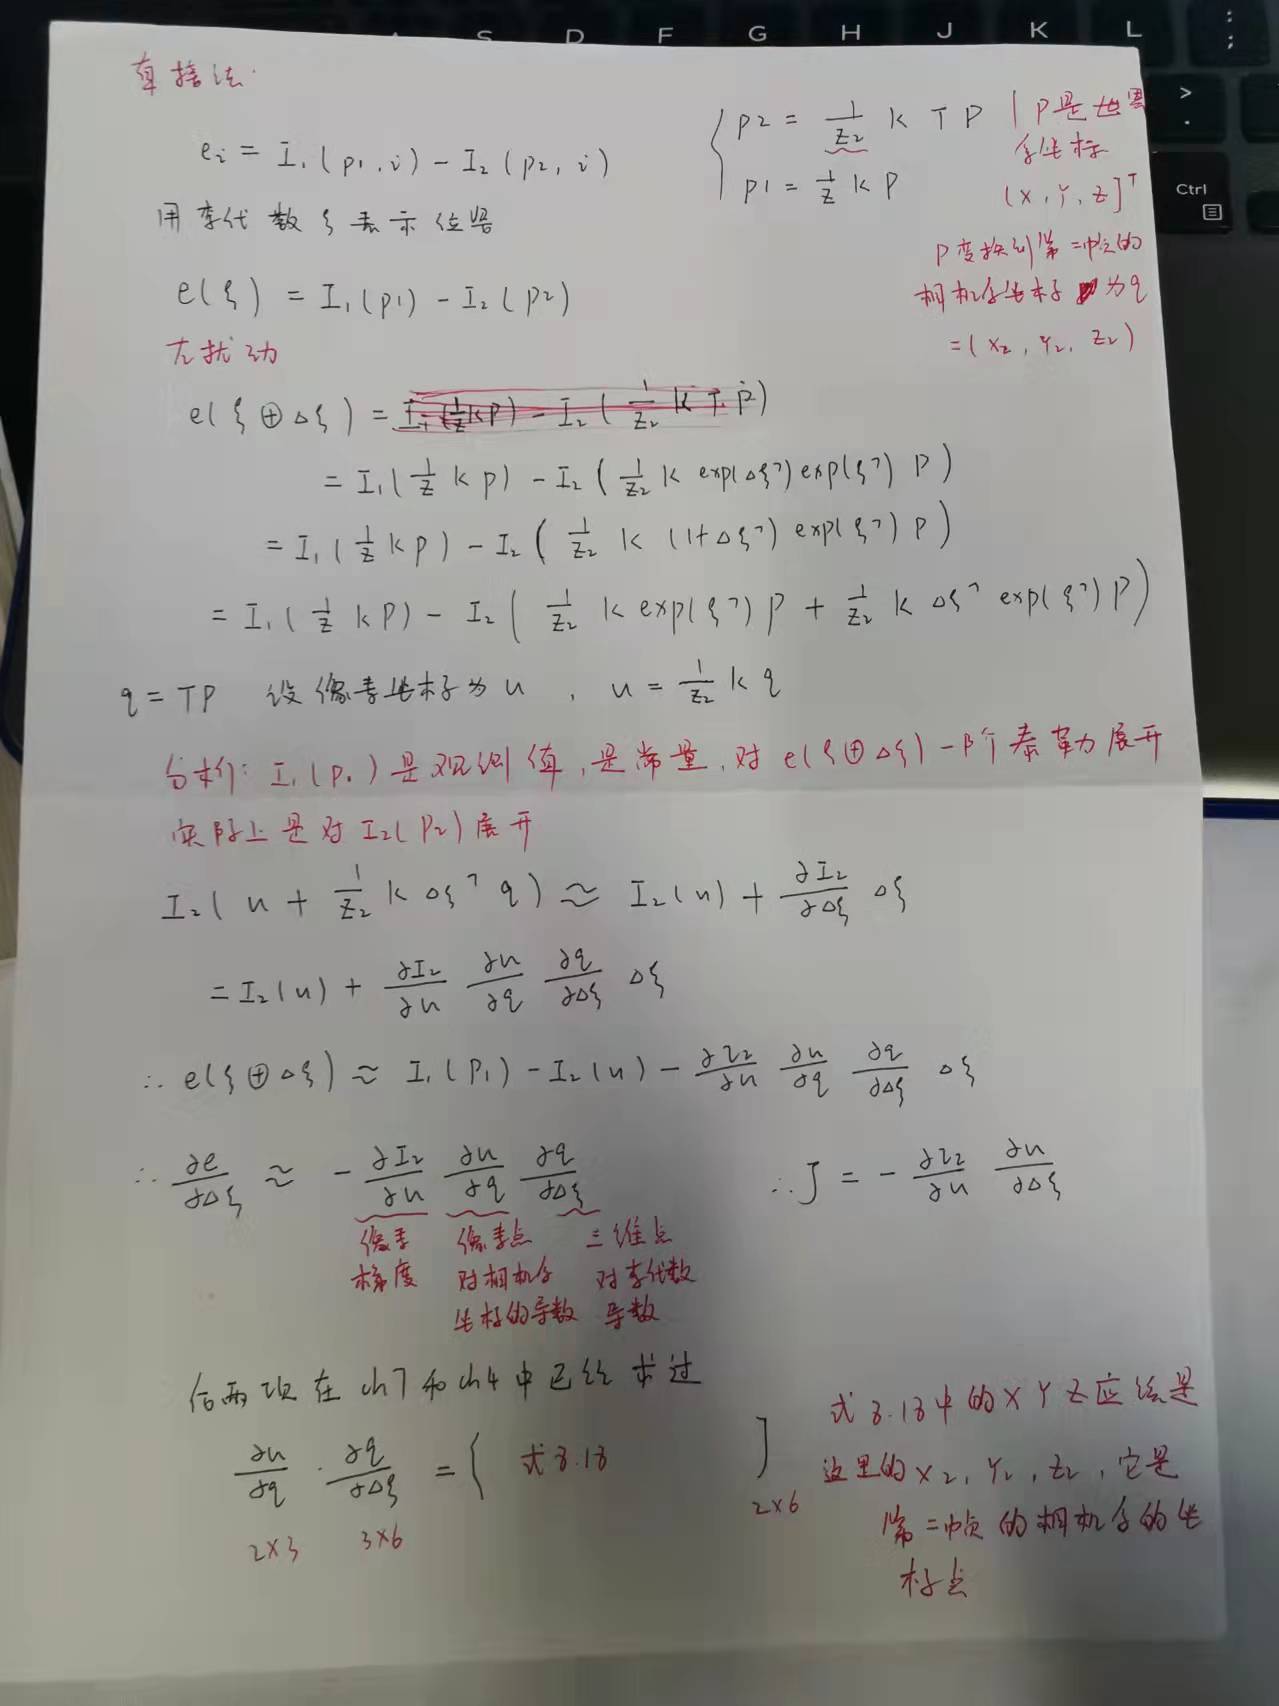 A S D F G H J K L : ;
> .
Ctrl
直接法.
e_i = I₁(p₁,i) - I₂(p₂,i)
{ p2 = 1/Z₂ K T P
p1 = 1/Z K P
P是世界
系坐标
(X, Y, Z]ᵀ
用李代数ξ表示位姿
P变换到第二帧的
相机系坐标为q
=(X₂, Y₂, Z₂)
e(ξ) = I₁(p1) - I₂(p2)
左扰动
e(ξ⊕Δξ) = I₁(1/Z KP) - I₂(1/Z₂ K T P)
= I₁(1/Z K P) - I₂(1/Z₂ K exp(Δξ^) exp(ξ^) P)
= I₁(1/Z K P) - I₂(1/Z₂ K (1+Δξ^) exp(ξ^) P)
= I₁(1/Z K P) - I₂(1/Z₂ K exp(ξ^) P + 1/Z₂ K Δξ^ exp(ξ^) P)
q = TP 设像素坐标为u , u = 1/Z₂ K q
分析: I₁(p₁)是观测值,是常量,对e(ξ⊕Δξ)一阶泰勒展开
实际上是对I₂(P₂)展开
I₂(u + 1/Z₂ K Δξ^ q) ≈ I₂(u) + ∂I₂/∂Δξ Δξ
= I₂(u) + ∂I₂/∂u ∂u/∂q ∂q/∂Δξ Δξ
∴ e(ξ⊕Δξ) ≈ I₁(P₁) - I₂(u) - ∂I₂/∂u ∂u/∂q ∂q/∂Δξ Δξ
∴ ∂e/∂Δξ ≈ - ∂I₂/∂u ∂u/∂q ∂q/∂Δξ
∴ J = - ∂I₂/∂u ∂u/∂Δξ
像素
梯度
像素点
对相机系
坐标的导数
三维点
对李代数
导数
后两项在ch7和ch4中已经求过
∂u/∂q · ∂q/∂Δξ = [ 式8.18 ]
2×3 3×6 2×6
式8.18中的X Y Z应该是
这里的X₂, Y₂, Z₂, 它是
第二帧的相机系的坐
标点